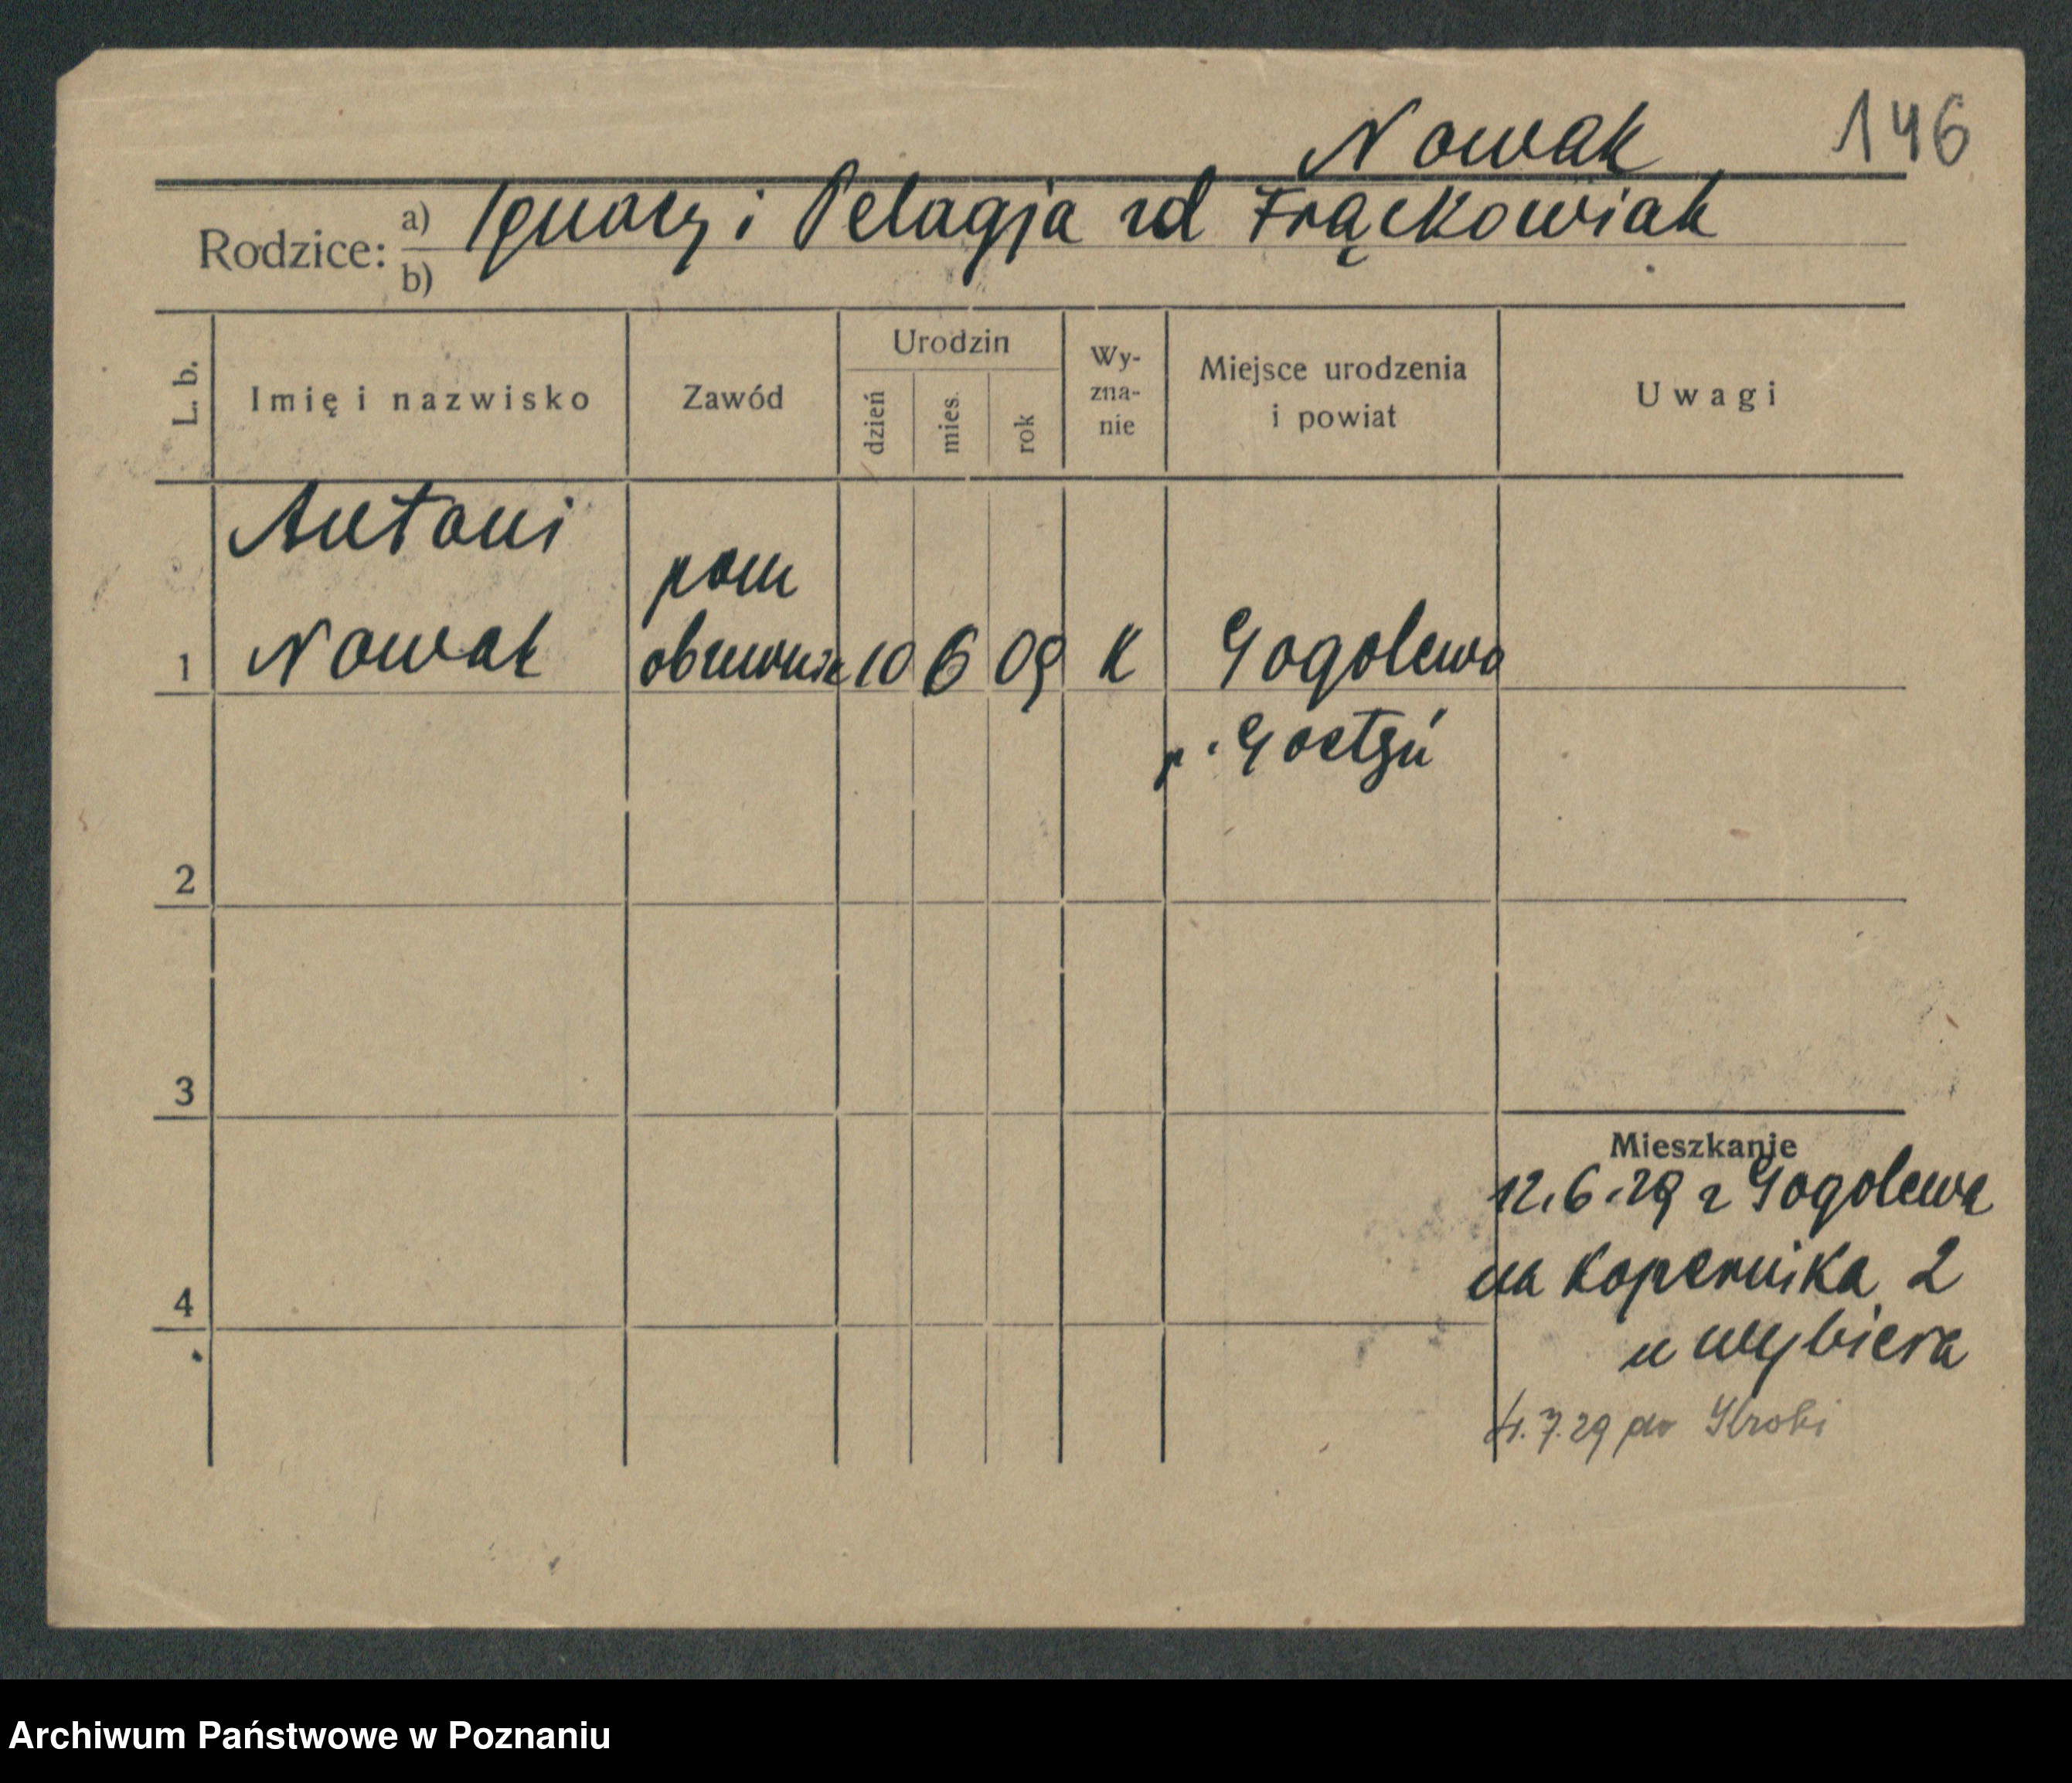 Nowak 146
Rodzice: a) Ignacy i Pelagja zd Frąckowiak
b)
L. b. Imię i nazwisko Zawód Urodzin dzień mies. rok Wy-zna-nie Miejsce urodzenia i powiat Uwagi
Antoni
pom
1 Nowak 10 6 09 K Gogolewo
p. Gostyń
2
3
Mieszkanie
12.6.29 z Gogolewa
na Kopernika 2
4
u Wybiera
4.7.29 do Krobi
Archiwum Państwowe w Poznaniu